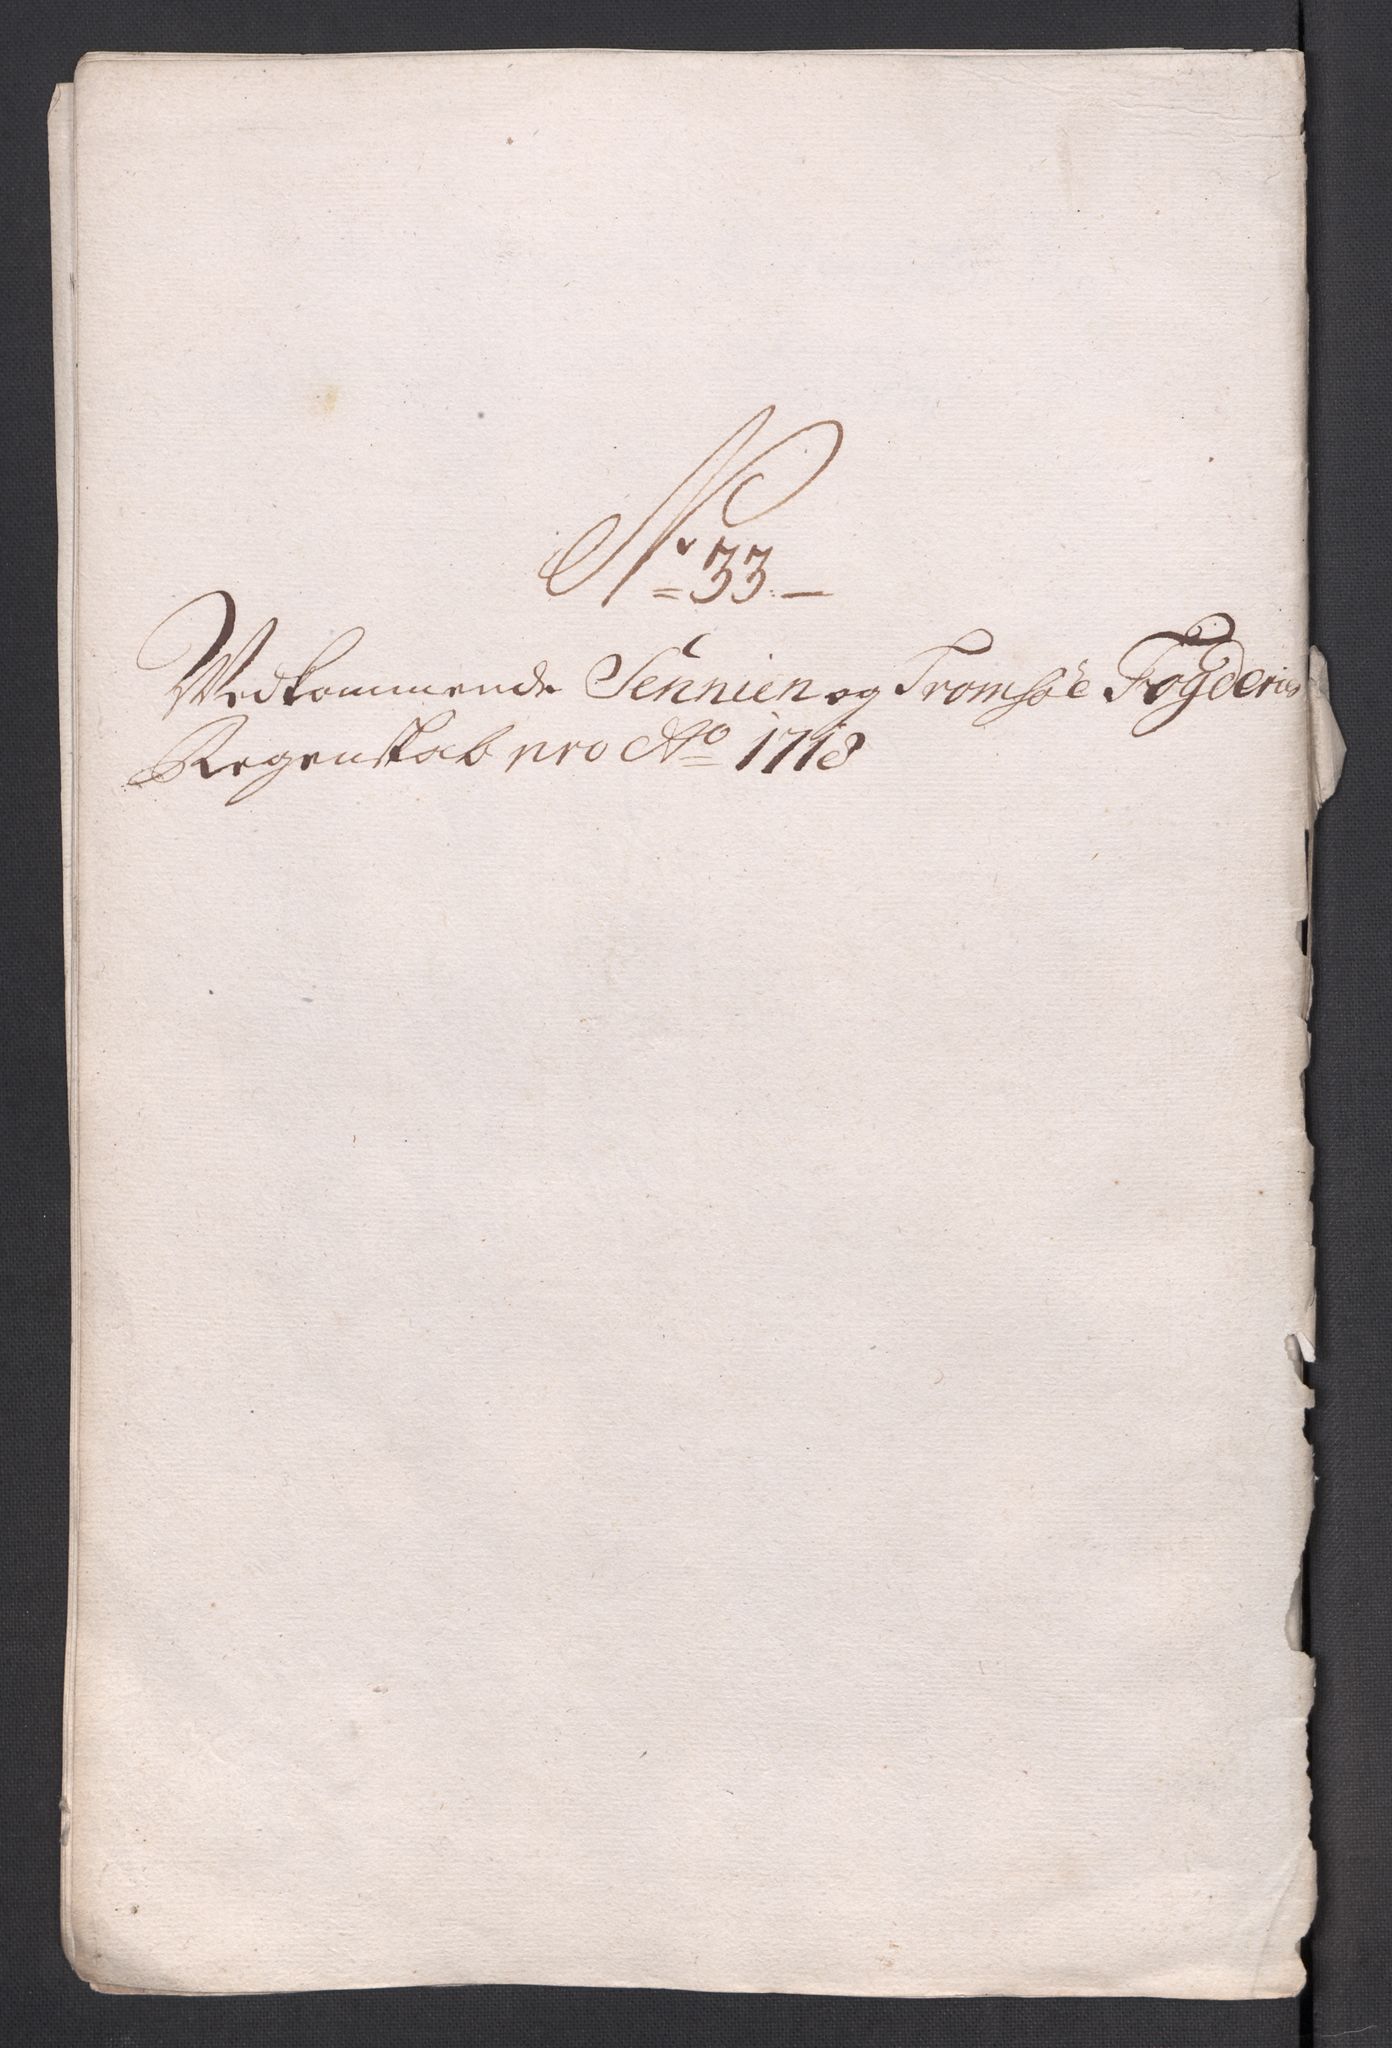 No 33.
Vedkommende Sennien og Tromsøe Fogderies
Regenskab pro Ao 1718